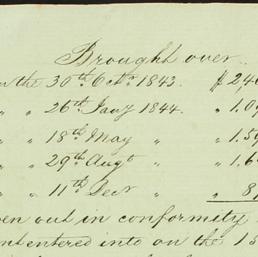 Brought over
on the 30th Octr. 1843. $ 2,4
" " 26th Jany 1844. " 1.0
" " 18th May " " 1.5
" " 29th Augt " " 1.6
" " 11th Decr " " 8
en out in conformity
nt entered into on the 15